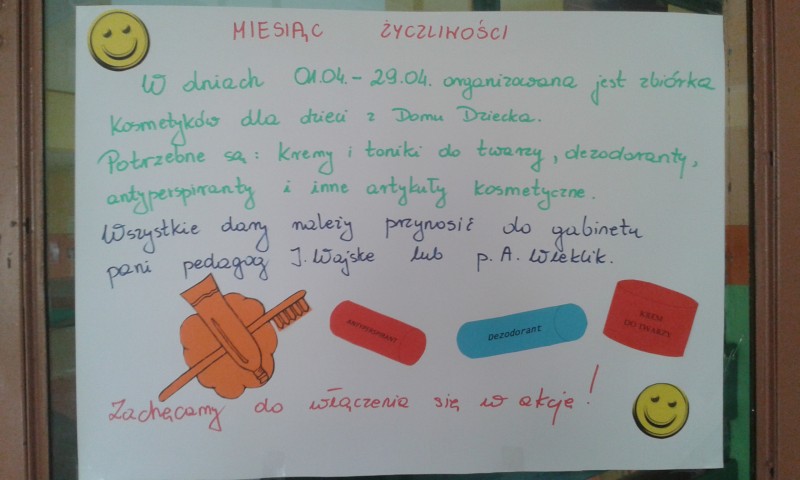 MIESIĄC ŻYCZLIWOŚCI
W dniach 01.04. - 29.04. organizowana jest zbiórka
kosmetyków dla dzieci z Domu Dziecka.
Potrzebne są: kremy i toniki do twarzy, dezodoranty,
antyperspiranty i inne artykuły kosmetyczne.
Wszystkie dary należy przynosić do gabinetu
pani pedagog J. Wajske lub p. A. Wleklik.
ANTYPERSPIRANT
Dezodorant
KREM
DO TWARZY
Zachęcamy do włączenia się w akcję!